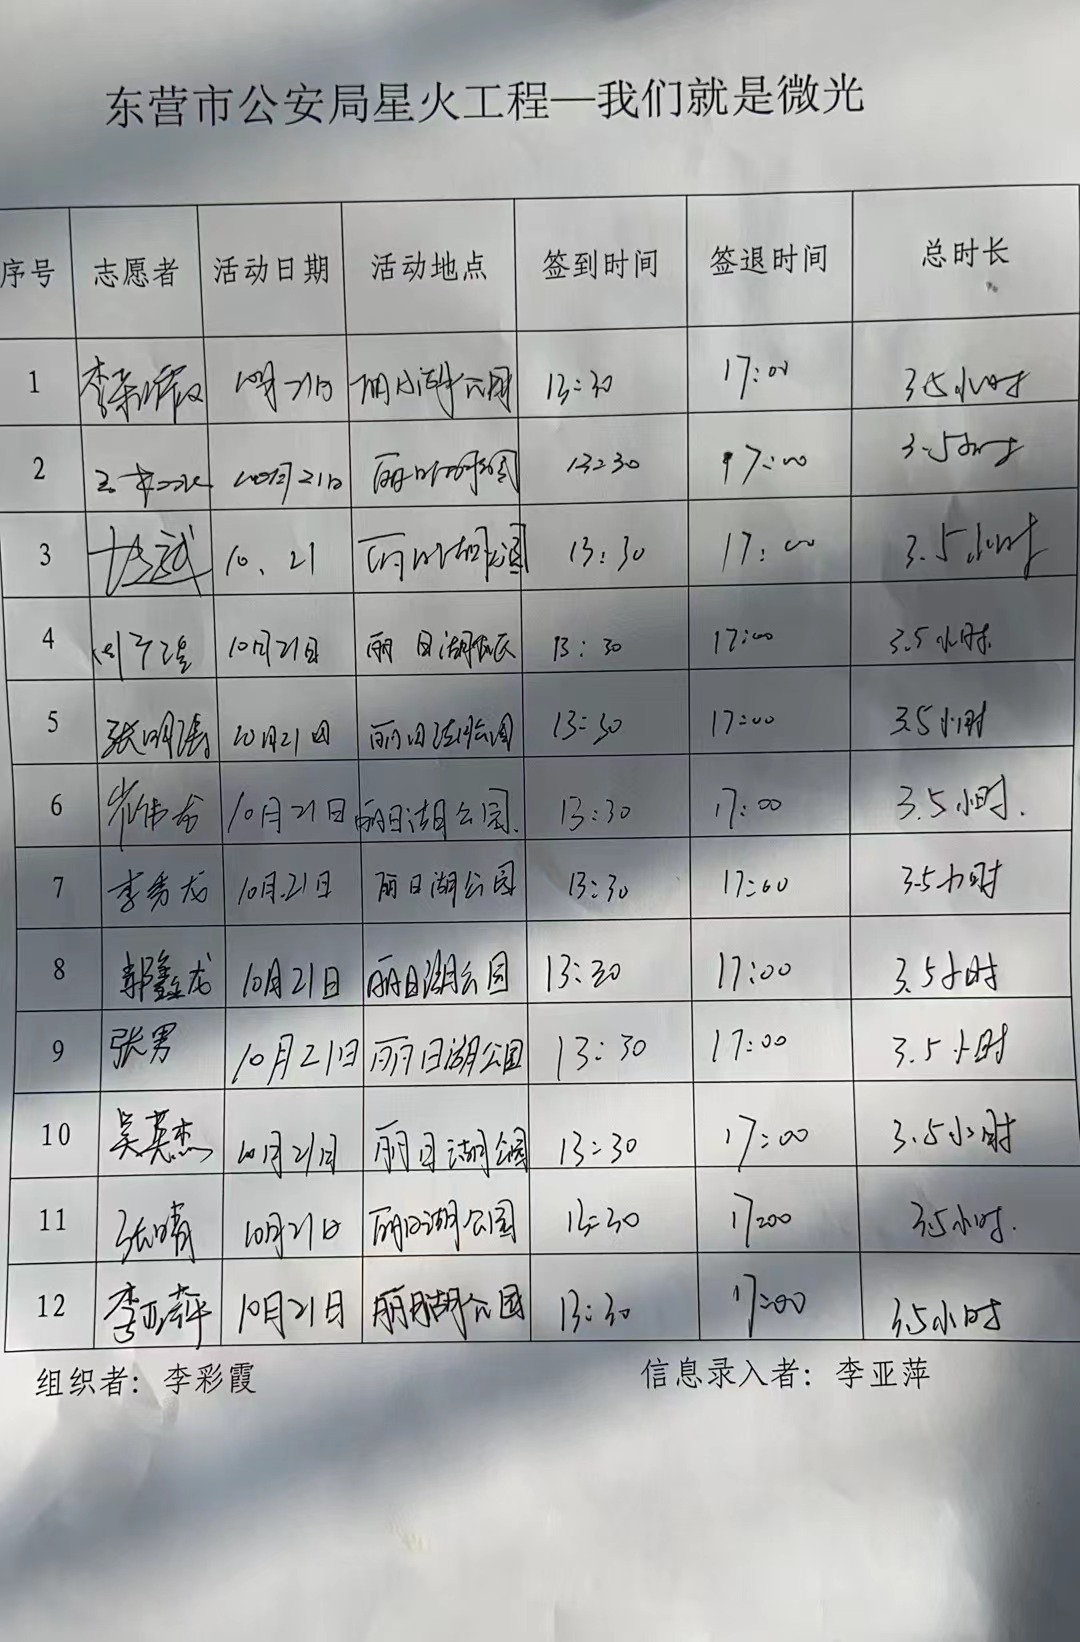 东营市公安局星火工程—我们就是微光
序号 志愿者 活动日期 活动地点 签到时间 签退时间 总时长
1 10月21日 丽日湖公园 13:30 17:00 3.5小时
2 10月21日 丽日湖公园 13:30 17:00 3.5小时
3 10.21 丽日湖公园 13:30 17:00 3.5小时
4 10月21日 丽日湖 13:30 17:00 3.5小时
5 张明涛 10月21日 丽日湖公园 13:30 17:00 3.5小时
6 崔伟龙 10月21日 丽日湖公园. 13:30 17:00 3.5小时.
7 李秀龙 10月21日 丽日湖公园 13:30 17:00 3.5小时
8 郭鑫龙 10月21日 丽日湖公园 13:30 17:00 3.5小时
9 张男 10月21日 丽日湖公园 13:30 17:00 3.5小时
10 吴英杰 10月21日 丽日湖公园 13:30 17:00 3.5小时
11 张晴 10月21日 丽日湖公园 13:30 17:00 3.5小时.
12 李亚萍 10月21日 丽日湖公园 13:30 17:00 3.5小时
组织者：李彩霞 信息录入者：李亚萍